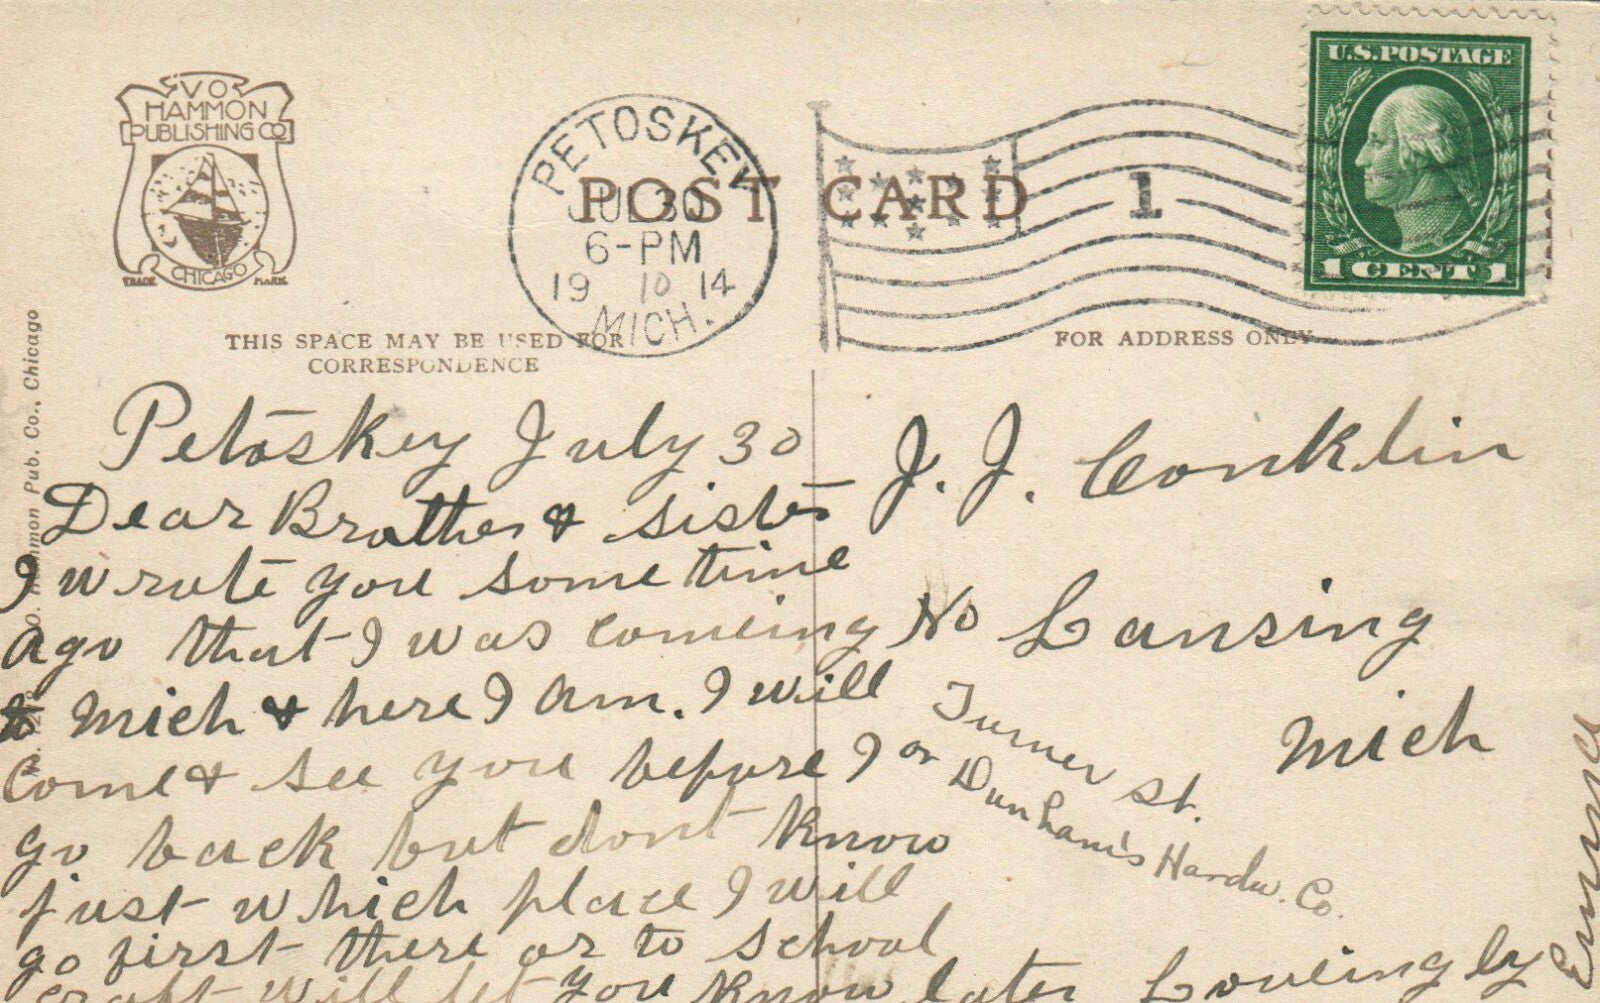 V O
HAMMON
PUBLISHING CO
CHICAGO
TRADE MARK
PETOSKEY
JUL 30
6-PM
19 10 14
MICH.
POST CARD
1
U.S. POSTAGE
1 CENT 1
THIS SPACE MAY BE USED FOR
CORRESPONDENCE
FOR ADDRESS ONLY
Hammon Pub. Co., Chicago
Petoskey July 30
Dear Brother & sister
I wrote you some time
ago that I was comeing
to Mich & here I am. I will
come & see you before I
go back but dont know
just which place I will
go first there or to school
craft will let you know later Loveingly
Emma
J. J. Conklin
No Lansing
Mich
Turner St.
or Dunham's Hardw. Co.